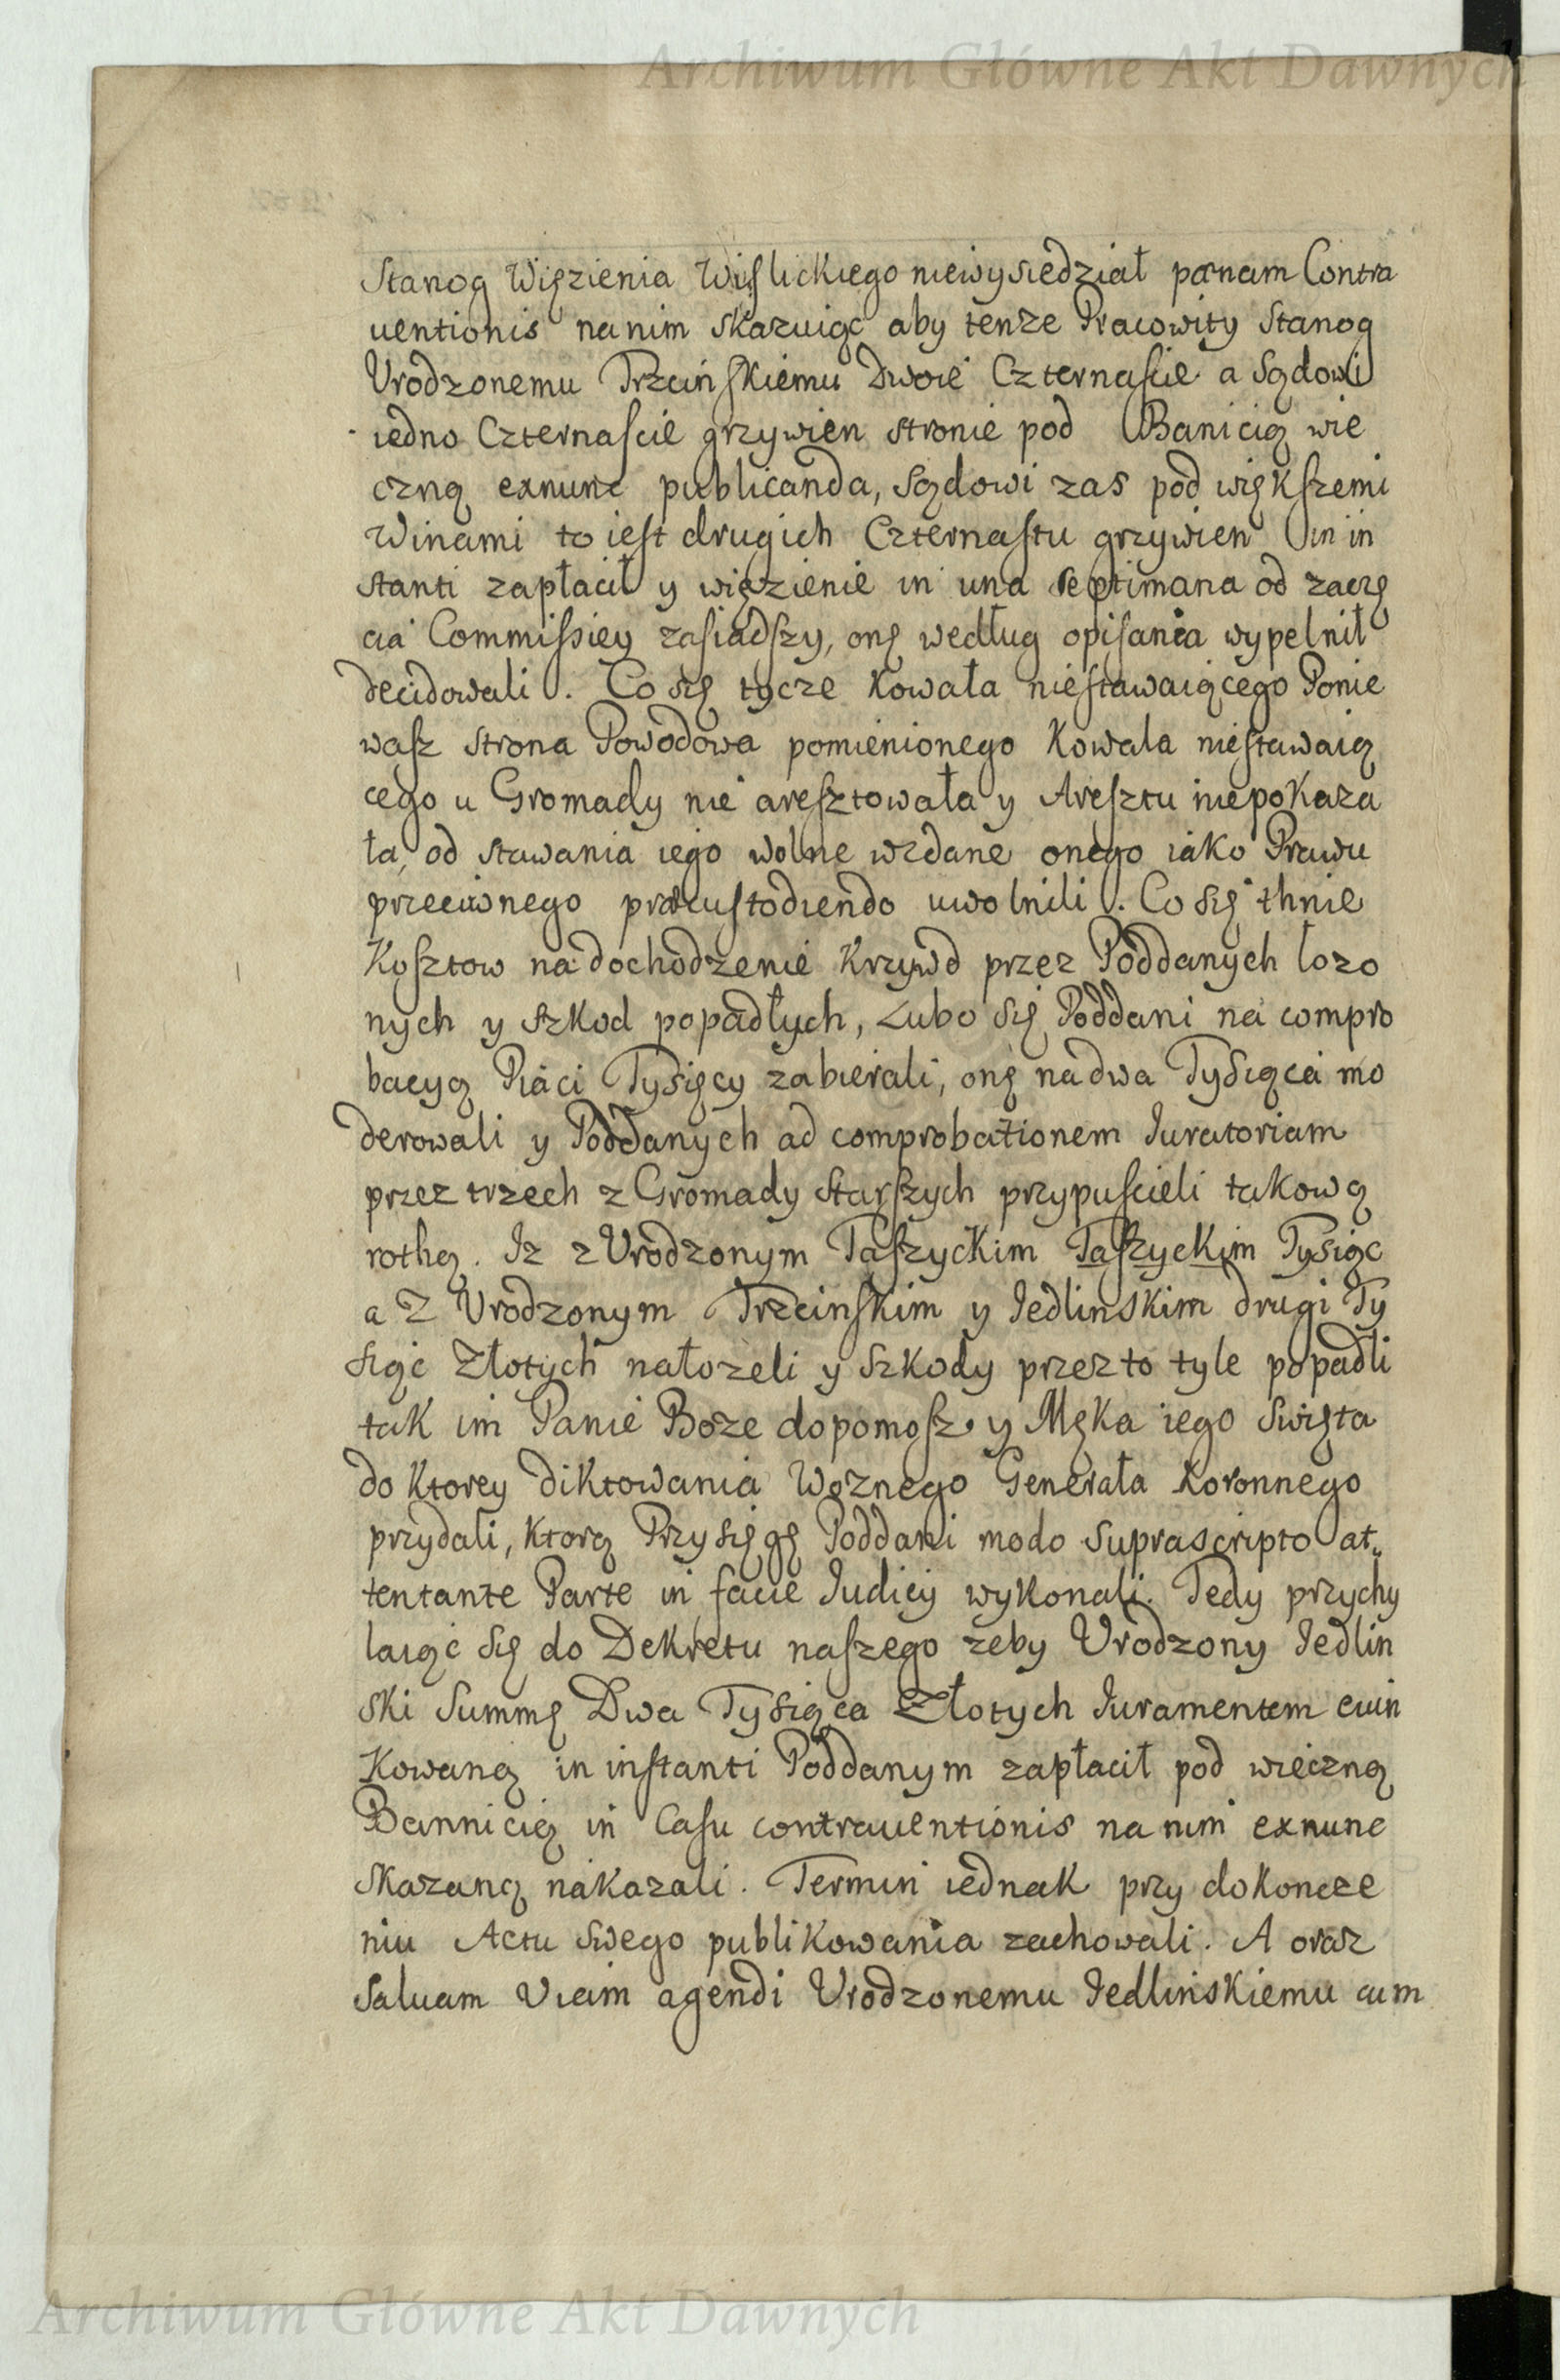 Archiwum Główne Akt Dawnych
Stanog Więzienia Wiślickiego niewysiedział pænam Contra
uentionis na nim skazuiąc aby tenze Pracowity Stanog
Vrodzonemu Trzcinskiemu Dwoie Czternascie a Sądowi
iedno Czternascie grzywien stronie pod Banicią wie
czną exnunc publicanda, Sądowi zas pod większemi
Winami to iest drugich Czternastu grzywien in in
stanti zapłacił y więzienie in una septimana od zaczę
cia Commissiey zasiadszy, onę według opisania wypełnił
decidowali. Co się tycze Kowala niestawaiącego Ponie
wasz Strona Powodowa pomienionego Kowala niestawaią
cego u Gromady nie aresztowała y Aresztu niepokaza
ła, od stawania iego wolne wzdane onego iako Prawu
przeciwnego præcustodiendo uwolnili. Co się thnie
Kosztow na dochodzenie Krzywd przez Poddanych łozo
nych y szkod popadłych, Lubo się Poddani na compro
bacyą Piąci Tysięcy zabierali, onę na dwa Tysiąca mo
derowali y Poddanych ad comprobationem Iuratoriam
przez trzech z Gromady Starszych przypuscieli takową
rothą. Iz z Vrodzonym Taszyckim Taszyckim Tysiąc
a z Vrodzonym Trzcinskim y Iedlinskim drugi Ty
siąc Złotych nałozeli y szkody przez to tyle popadli
tak im Panie Boze dopomosz y Męka iego Swięta
do Ktorey diktowania Woznego Generała Koronnego
przydali, Ktorą Przysięgę Poddani modo Suprascripto at„
tentante Parte in facie Iudicij wykonali. Tedy przychy
laiąc się do Dekretu naszego zeby Vrodzony Iedlin
ski Summę Dwa Tysiąca Złotych Iuramentem ewin
Kowaną in instanti Poddanym zapłacił pod wieczną
Bannicią in Casu contrauentionis na nim exnunc
skazaną nakazali. Termin iednak przy dokoncze
niu Actu swego publikowania zachowali. A oraz
Saluam Viam agendi Vrodzonemu Iedlinskiemu cum
Archiwum Główne Akt Dawnych